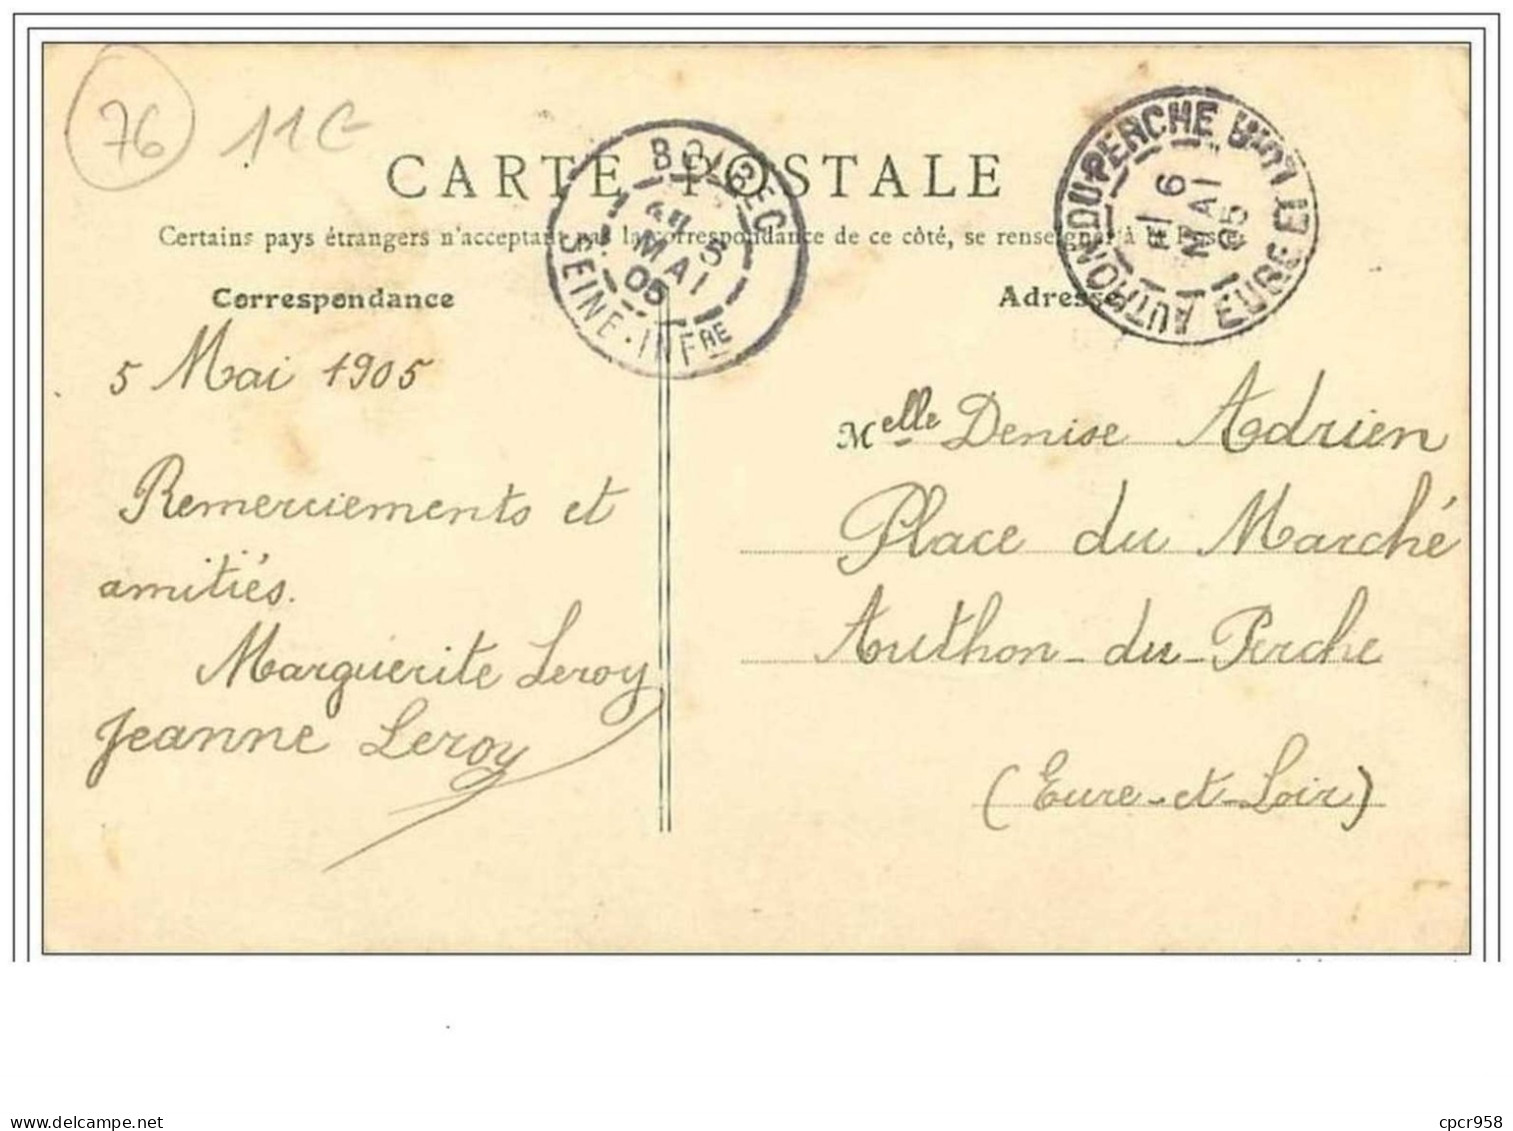 76 11€
CARTE POSTALE
Certains pays étrangers n'acceptant pas la correspondance de ce côté, se renseigner à la Poste
Correspondance
Adresse
BOLBEC
5
MAI
05
SEINE-INFRE
AUTHON DU PERCHE
6
MAI
05
EURE ET LOIR
5 Mai 1905
Remerciements et
amitiés.
Marguerite Leroy
Jeanne Leroy
Melle Denise Adrien
Place du Marché
Authon-du-Perche
(Eure-et-Loir)
delcampe.net
cpcr958